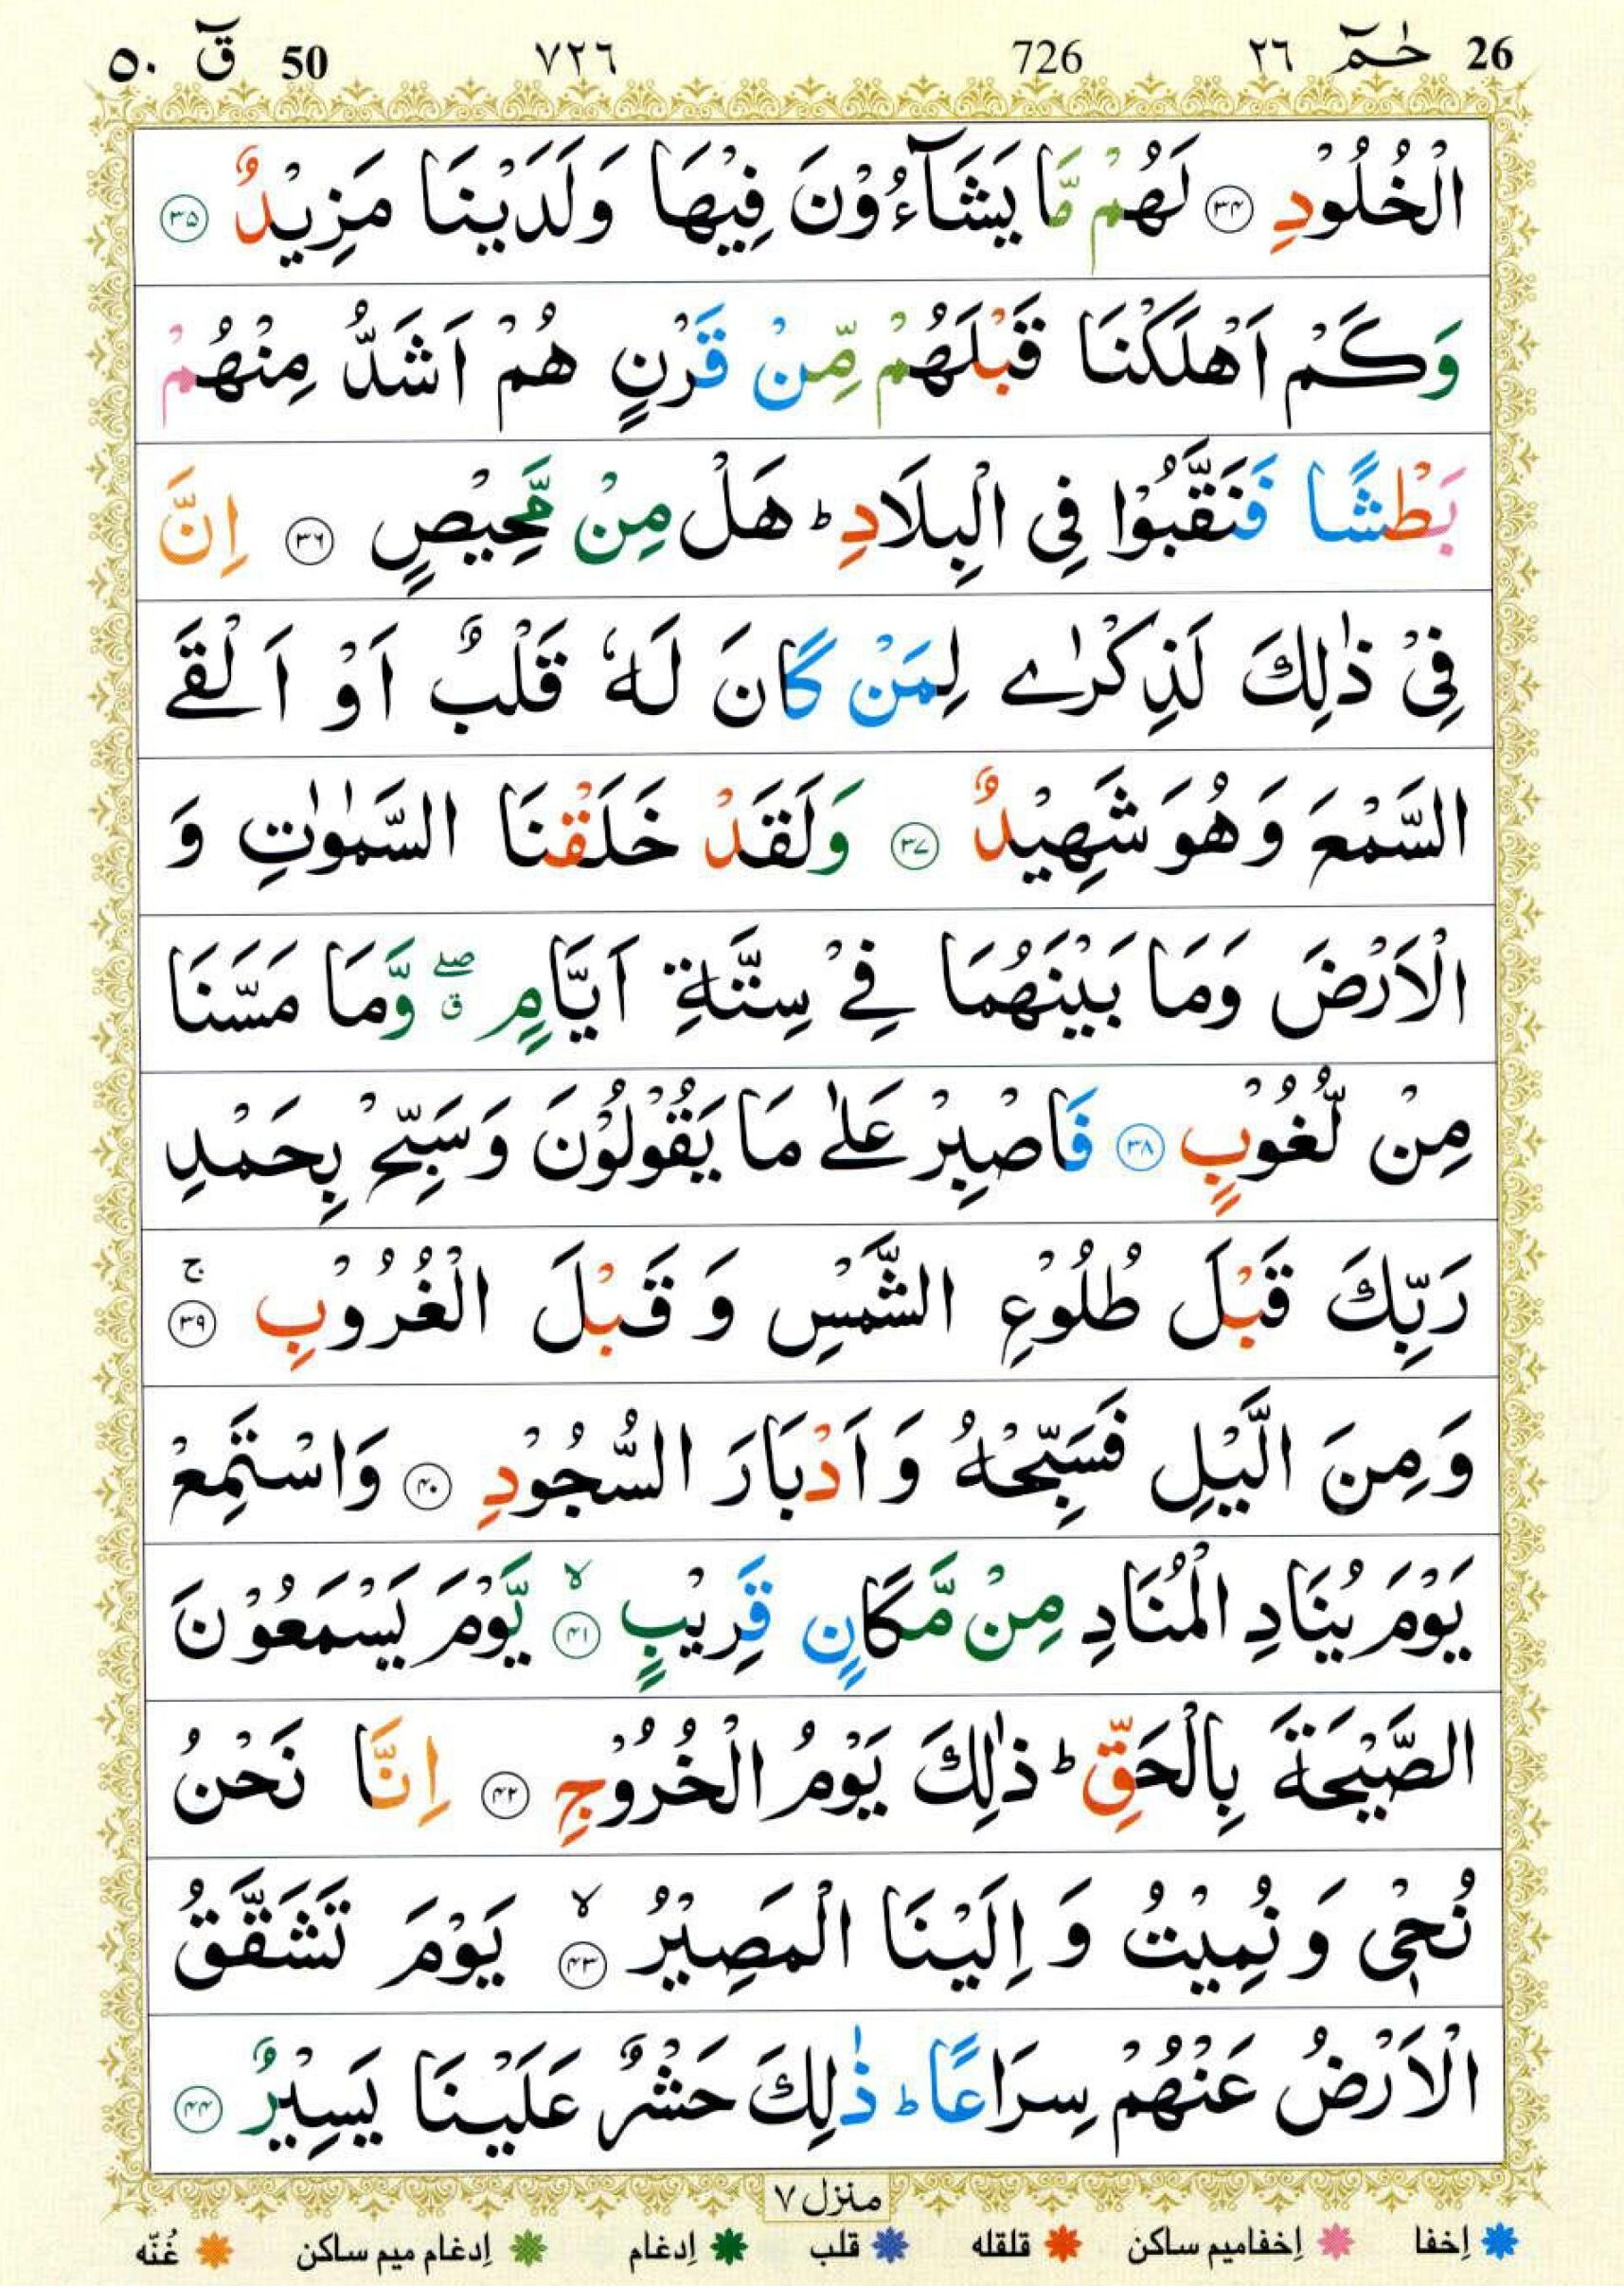 26 حٰمٓ ٢٦ 726 ٧٢٦ 50 قٓ ٥٠
الْخُلُوْدِ ﴿۳۴﴾ لَهُمْ مَّا يَشَآءُوْنَ فِيْهَا وَلَدَيْنَا مَزِيْدٌ ﴿۳۵﴾
وَكَمْ اَهْلَكْنَا قَبْلَهُمْ مِّنْ قَرْنٍ هُمْ اَشَدُّ مِنْهُمْ
بَطْشًا فَنَقَّبُوْا فِى الْبِلَادِ ؕ هَلْ مِنْ مَّحِيْصٍ ﴿۳۶﴾ اِنَّ
فِىْ ذٰلِكَ لَذِكْرٰى لِمَنْ كَانَ لَهٗ قَلْبٌ اَوْ اَلْقَى
السَّمْعَ وَهُوَ شَهِيْدٌ ﴿۳۷﴾ وَلَقَدْ خَلَقْنَا السَّمٰوٰتِ وَ
الْاَرْضَ وَمَا بَيْنَهُمَا فِىْ سِتَّةِ اَيَّامٍ ۖق وَّمَا مَسَّنَا
مِنْ لُّغُوْبٍ ﴿۳۸﴾ فَاصْبِرْ عَلٰى مَا يَقُوْلُوْنَ وَسَبِّحْ بِحَمْدِ
رَبِّكَ قَبْلَ طُلُوْعِ الشَّمْسِ وَ قَبْلَ الْغُرُوْبِ ۚ ﴿۳۹﴾
وَمِنَ الَّيْلِ فَسَبِّحْهُ وَ اَدْبَارَ السُّجُوْدِ ﴿۴۰﴾ وَاسْتَمِعْ
يَوْمَ يُنَادِ الْمُنَادِ مِنْ مَّكَانٍ قَرِيْبٍ ۙ ﴿۴۱﴾ يَّوْمَ يَسْمَعُوْنَ
الصَّيْحَةَ بِالْحَقِّ ؕ ذٰلِكَ يَوْمُ الْخُرُوْجِ ﴿۴۲﴾ اِنَّا نَحْنُ
نُحْىٖ وَ نُمِيْتُ وَ اِلَيْنَا الْمَصِيْرُ ۙ ﴿۴۳﴾ يَوْمَ تَشَقَّقُ
الْاَرْضُ عَنْهُمْ سِرَاعًا ؕ ذٰلِكَ حَشْرٌ عَلَيْنَا يَسِيْرٌ ﴿۴۴﴾
منزل ٧
إخفا إخفامیم ساکن قلقله قلب إدغام إدغام میم ساکن غُنّه